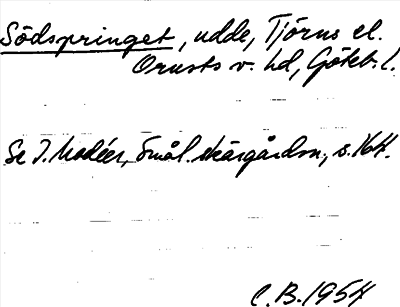 Södspringet, udde, Tjörns el.
Orusts v. hd, Göteb. l.
Se I. Modéer, Smål. skärgårdsn., s. 164.
C.B. 1954